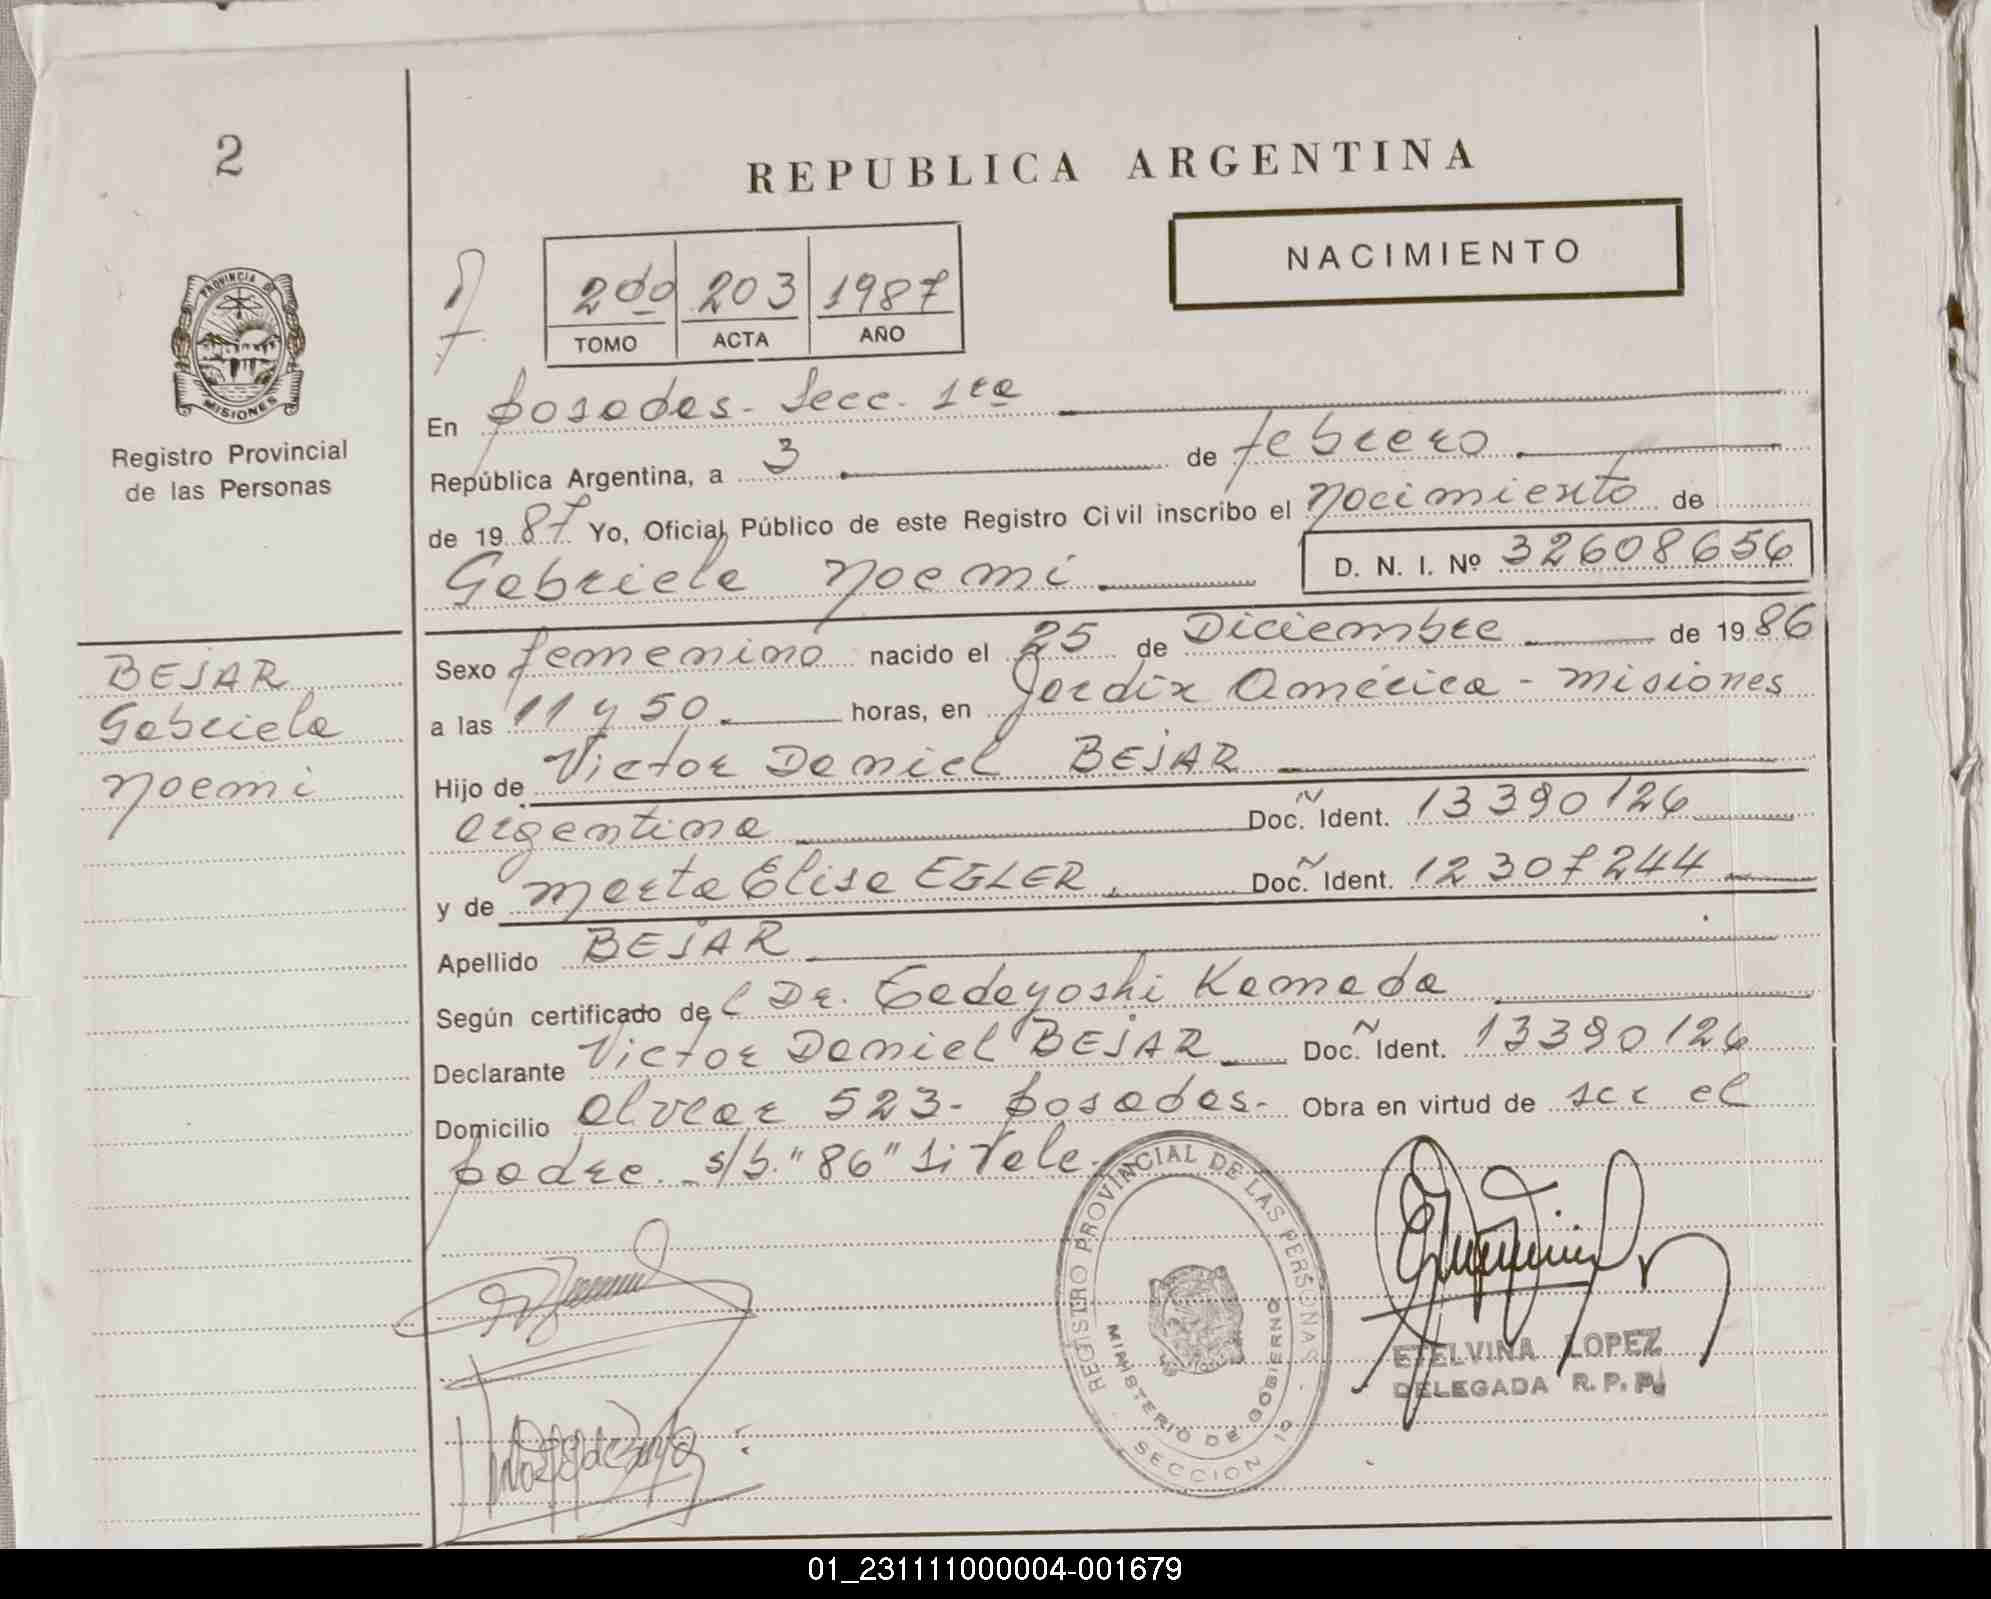 2
REPUBLICA ARGENTINA
NACIMIENTO
2do 203 1987
TOMO ACTA AÑO
PROVINCIA DE
MISIONES
Registro Provincial
de las Personas
En Posadas - Secc. 1ra
República Argentina, a 3 de febrero
de 1987 Yo, Oficial Público de este Registro Civil inscribo el nacimiento de
Gabriela Noemi D. N. I. Nº 32608656
BEJAR
Gabriela
Noemi
Sexo femenino nacido el 25 de Diciembre de 1986
a las 11 y 50 horas, en Jardín América - Misiones
Hijo de Victor Daniel BEJAR
argentina Doc. Ident. 13390126
y de Marta Elisa EGLER Doc. Ident. 12307244
Apellido BEJAR
Según certificado de l Dr. Tadayoshi Kameda
Declarante Victor Daniel BEJAR Doc. Ident. 13390126
Domicilio Alvear 523 - Posadas - Obra en virtud de ser el
padre. - s/b. "86" si Vale.
REGISTRO PROVINCIAL DE LAS PERSONAS
MINISTERIO DE GOBIERNO
SECCION 1º
ETELVINA LOPEZ
DELEGADA R. P. P.
01_231111000004-001679